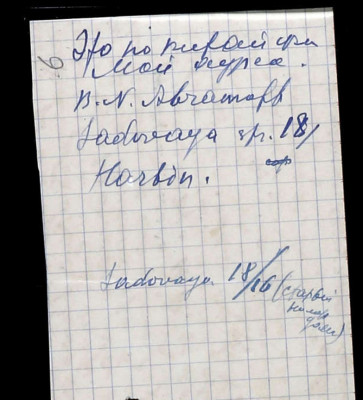 6
Это по
Мой адрес.
B. N. Abramoff
Sadovaya 18/
Harbin.
Sadovaya 18/16 (старый
номер
дома)